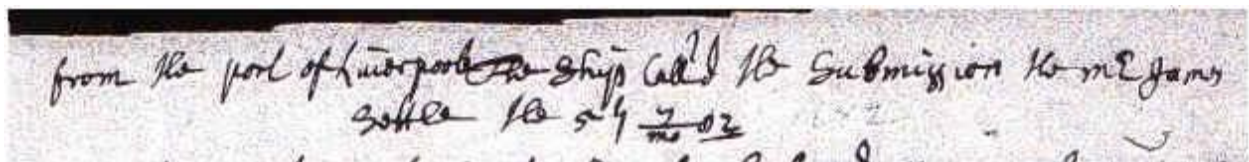 from the port of Liverpoole the Ship Call'd the Submission the mr James
Settle the 5th 7/mo 82